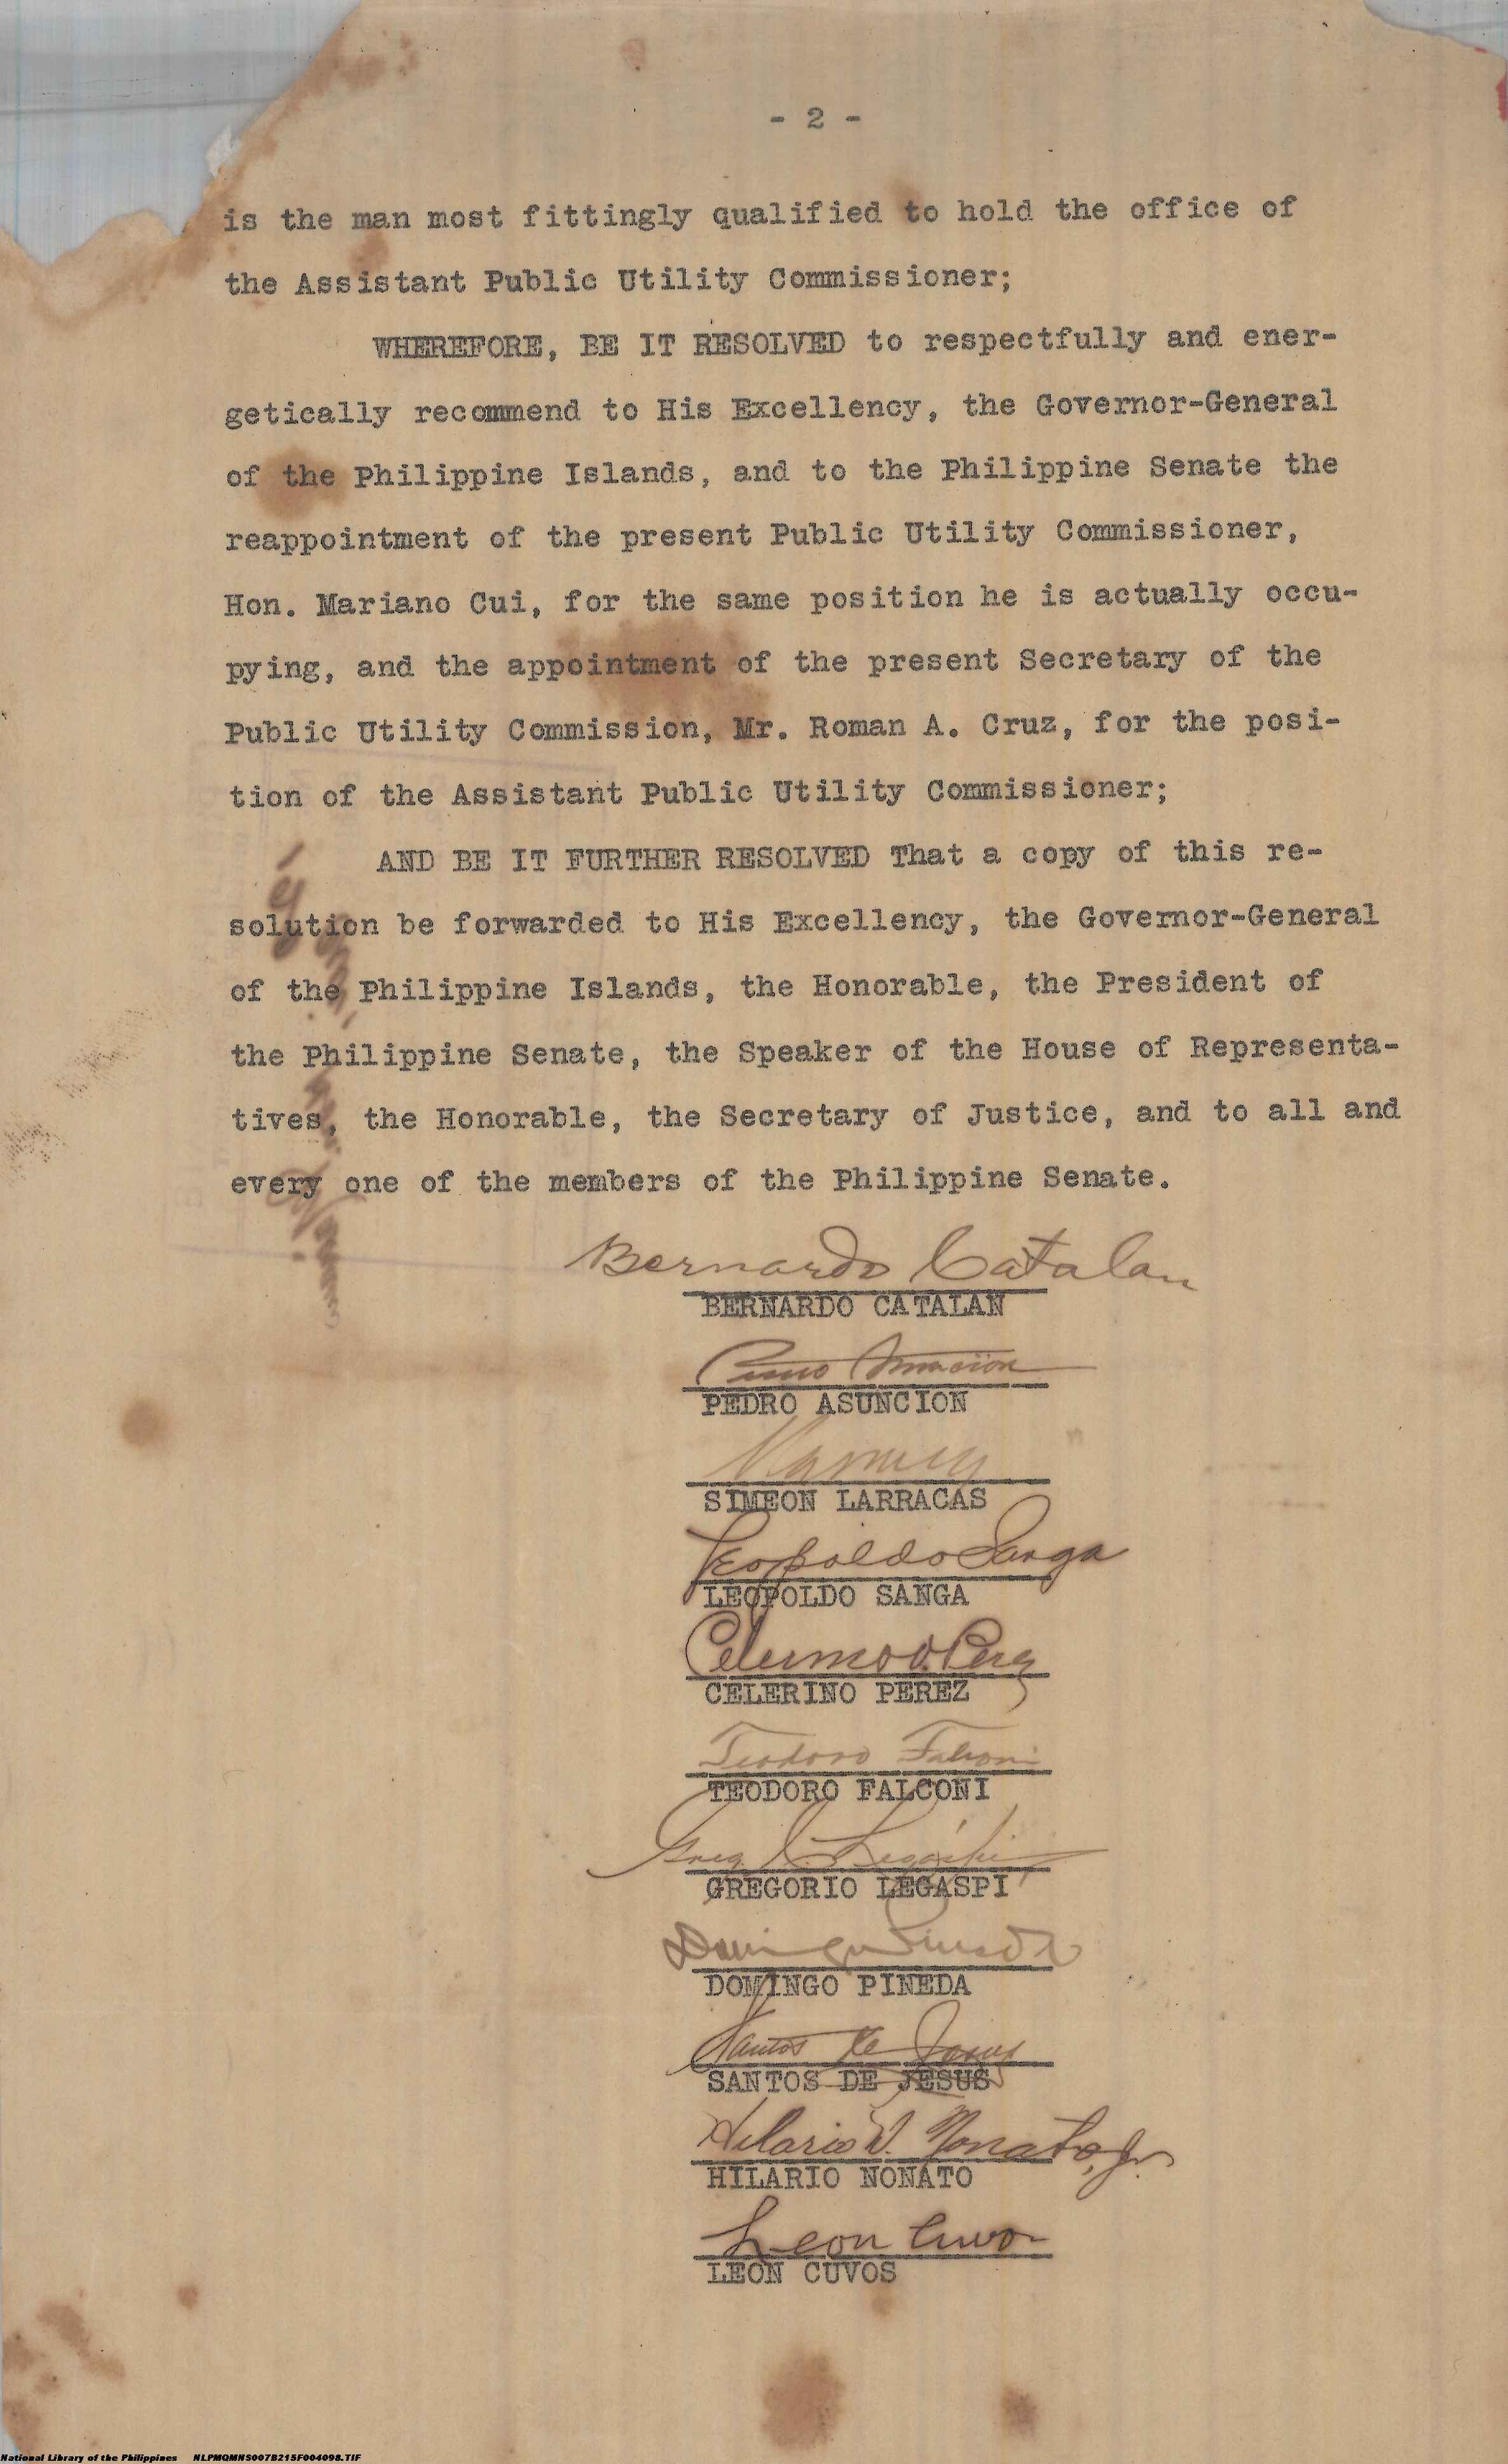 - 2 -
is the man most fittingly qualified to hold the office of
the Assistant Public Utility Commissioner;
WHEREFORE, BE IT RESOLVED to respectfully and ener-
getically recommend to His Excellency, the Governor-General
of the Philippine Islands, and to the Philippine Senate the
reappointment of the present Public Utility Commissioner,
Hon. Mariano Cui, for the same position he is actually occu-
pying, and the appointment of the present Secretary of the
Public Utility Commission, Mr. Roman A. Cruz, for the posi-
tion of the Assistant Public Utility Commissioner;
AND BE IT FURTHER RESOLVED That a copy of this re-
solution be forwarded to His Excellency, the Governor-General
of the Philippine Islands, the Honorable, the President of
the Philippine Senate, the Speaker of the House of Representa-
tives, the Honorable, the Secretary of Justice, and to all and
every one of the members of the Philippine Senate.
Bernardo Catalan
BERNARDO CATALAN
Asuncion
PEDRO ASUNCION
SIMEON LARRACAS
Leopoldo Sanga
LEOPOLDO SANGA
Celerino O. Perez
CELERINO PEREZ
Teodoro Falconi
TEODORO FALCONI
Greg. Legaspi
GREGORIO LEGASPI
Domingo Pineda
DOMINGO PINEDA
Santos de Jesus
SANTOS DE JESUS
Hilario V. Nonato, Jr.
HILARIO NONATO
Leon Cuvo
LEON CUVOS
National Library of the Philippines NLPMQMNS007B215F004098.TIF